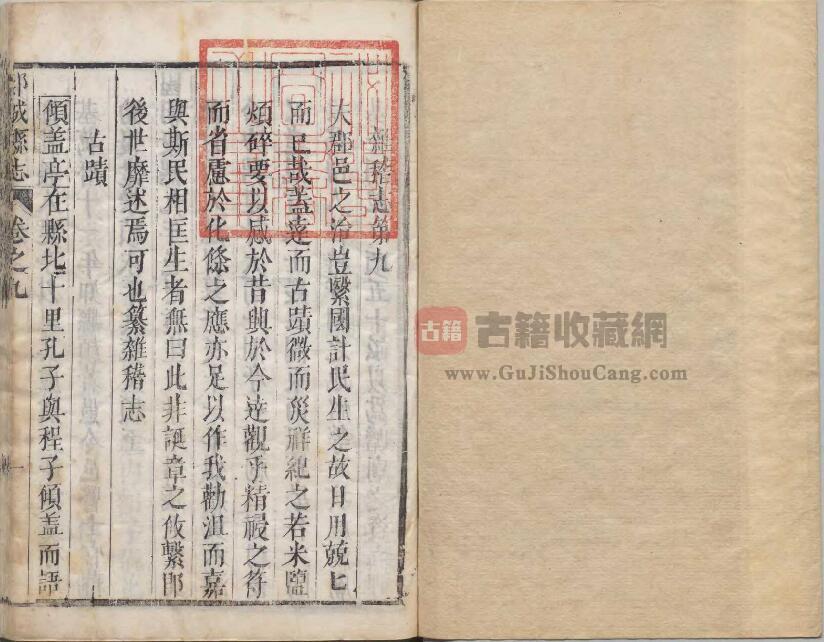 雜稽志第九
夫郡邑之治豈繫國計民生之故日用兢匕
而已哉盖遠而古蹟微而災祥紀之若米鹽
煩碎要以感於昔與於今達觀乎精祲之符
而省慮於化條之應亦足以作我勸沮而嘉
與斯民相匡生者無曰此非誕章之攸繫即
後世靡述焉可也纂雜稽志
古蹟
傾盖亭在縣北十里孔子與程子傾盖而語
郯城縣志 卷之九 一
古籍 古籍收藏網
www.GuJiShouCang.com